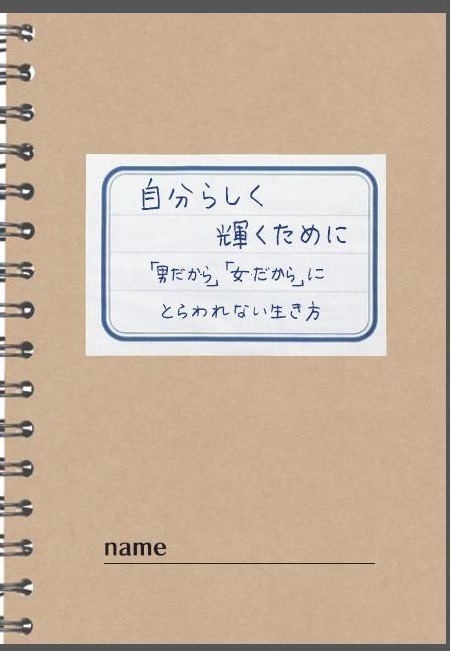 自分らしく
輝くために
「男だから」「女だから」に
とらわれない生き方
name